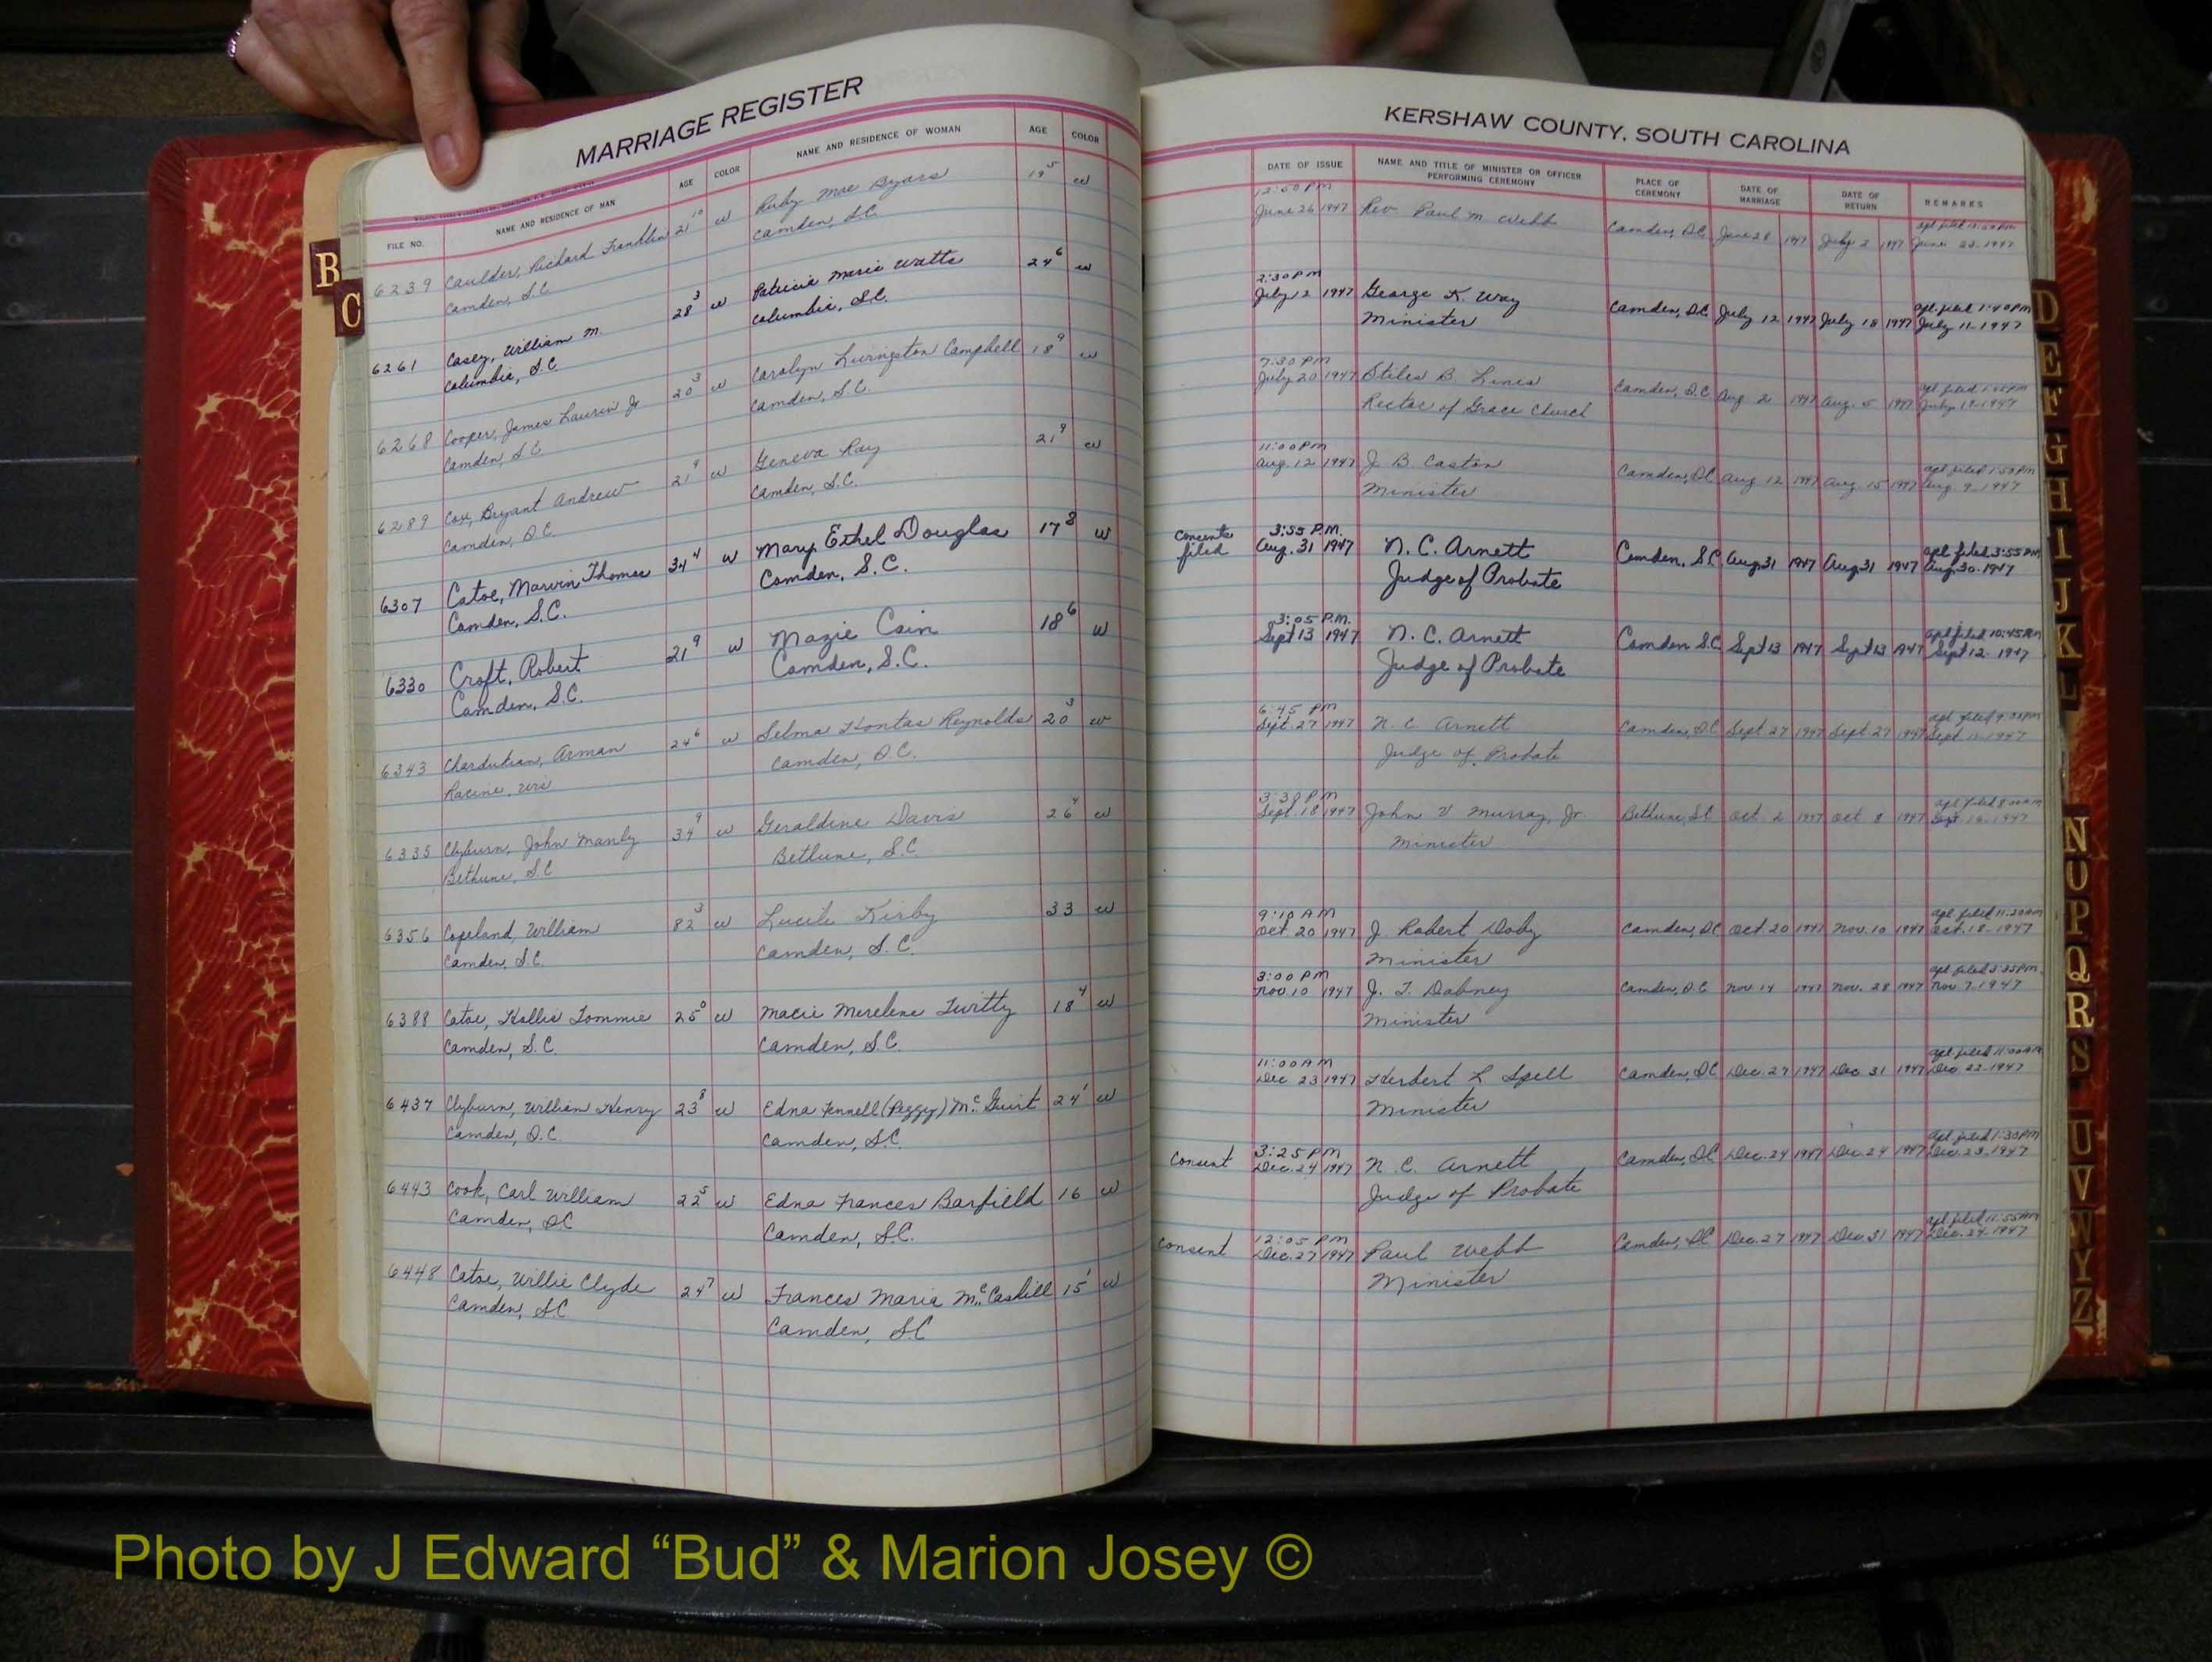 MARRIAGE REGISTER
FILE NO. NAME AND RESIDENCE OF MAN AGE COLOR NAME AND RESIDENCE OF WOMAN AGE COLOR
6239 Caulder, Richard Franklin 21 10 w Ruby Mae Byars 19 5 w
Camden, S.C. Camden, S.C.
6261 Casey, William M. 28 3 w Patricia Marie Watts 24 6 w
Columbia, S.C. Columbia, S.C.
6268 Cooper, James Laurin Jr 20 3 w Carolyn Livingston Campbell 18 9 w
Camden, S.C. Camden, S.C.
6289 Cox, Bryant Andrew 21 9 w Geneva Ray 21 9 w
Camden, S.C. Camden, S.C.
6307 Catoe, Marvin Thomas 34 4 w Mary Ethel Douglas 17 8 w
Camden, S.C. Camden, S.C.
6330 Croft, Robert 21 9 w Mazie Cain 18 6 w
Camden, S.C. Camden, S.C.
6343 Chardukian, Arman 24 6 w Selma Hontas Reynolds 20 3 w
Racine, Wis Camden, S.C.
6335 Clyburn, John Manly 34 9 w Geraldine Davis 26 4 w
Bethune, S.C. Bethune, S.C.
6356 Copeland, William 82 3 w Lucile Kirby 33 w
Camden, S.C. Camden, S.C.
6388 Catoe, Hallie Tommie 25 0 w Macie Merelene Twitty 18 4 w
Camden, S.C. Camden, S.C.
6437 Clyburn, William Henry 23 8 w Edna Fennell (Peggy) McGuirt 24 1 w
Camden, S.C. Camden, S.C.
6443 Cook, Carl William 22 5 w Edna Frances Barfield 16 w
Camden, SC Camden, S.C.
6448 Catoe, Willie Clyde 24 7 w Frances Maria McCaskill 15 1 w
Camden, S.C. Camden, S.C
KERSHAW COUNTY, SOUTH CAROLINA
DATE OF ISSUE NAME AND TITLE OF MINISTER OR OFFICER PERFORMING CEREMONY PLACE OF CEREMONY DATE OF MARRIAGE DATE OF RETURN REMARKS
12:50 PM apl. filed
June 26 1947 Rev. Paul M. Webb Camden, S.C. June 28 1947 July 2 1947 June 1947
2:30 PM apl. filed 1:40 PM
July 12 1947 George K. Way Camden, S.C. July 12 1947 July 18 1947 July 11-1947
Minister
7:30 PM apl. filed
July 20 1947 Stiles B. Lines Camden, S.C. Aug 2 1947 Aug. 5 1947 July 19-1947
Rector of Grace Church
11:00 PM apl. filed 1:50 PM
Aug. 12 1947 J. B. Caston Camden, S.C. Aug 12 1947 Aug 15 1947 Aug. 9-1947
Minister
consents filed 3:55 P.M. apl. filed 3:55 PM
Aug. 31 1947 N. C. Arnett Camden, S.C. Aug 31 1947 Aug 31 1947 Aug. 30-1947
Judge of Probate
3:05 P.M. apl. filed 10:45 AM
Sept 13 1947 N. C. Arnett Camden S.C. Sept 13 1947 Sept 13 1947 Sept 12-1947
Judge of Probate
6:45 PM apl. filed
Sept. 27 1947 N. C. Arnett Camden, S.C. Sept 27 1947 Sept. 27 1947 Sept 1947
Judge of Probate
3:30 PM apl. filed
Sept. 18 1947 John V Murray, Jr. Bethune, SC Oct. 2 1947 Oct 8 1947 Sept. 1947
Minister
9:10 AM apl. filed 11:20 AM
Oct. 20 1947 J. Robert Doby Camden, S.C. Oct. 20 1947 Nov. 10 1947 Oct. 18-1947
Minister
3:00 PM apl. filed 3:35 PM
Nov 10 1947 J. T. Dabney Camden, S.C. Nov 14 1947 Nov. 28 1947 Nov 7-1947
Minister
11:00 AM apl. filed 11:00 AM
Dec 23 1947 Herbert L Spell Camden, S.C. Dec. 27 1947 Dec 31 1947 Dec 22-1947
Minister
consent 3:25 PM apl. filed 1:30 PM
Dec. 24 1947 N. C. Arnett Camden, S.C. Dec. 24 1947 Dec. 24 1947 Dec. 23-1947
Judge of Probate
consent 12:05 PM apl. filed 11:55 AM
Dec. 27 1947 Paul Webb Camden, S.C. Dec. 27 1947 Dec 31 1947 Dec. 24-1947
Minister
B
C
D
E
F
G
H
I
J
K
L
N
O
P
Q
R
S
U
V
W
Y
Z
Photo by J Edward “Bud” & Marion Josey ©